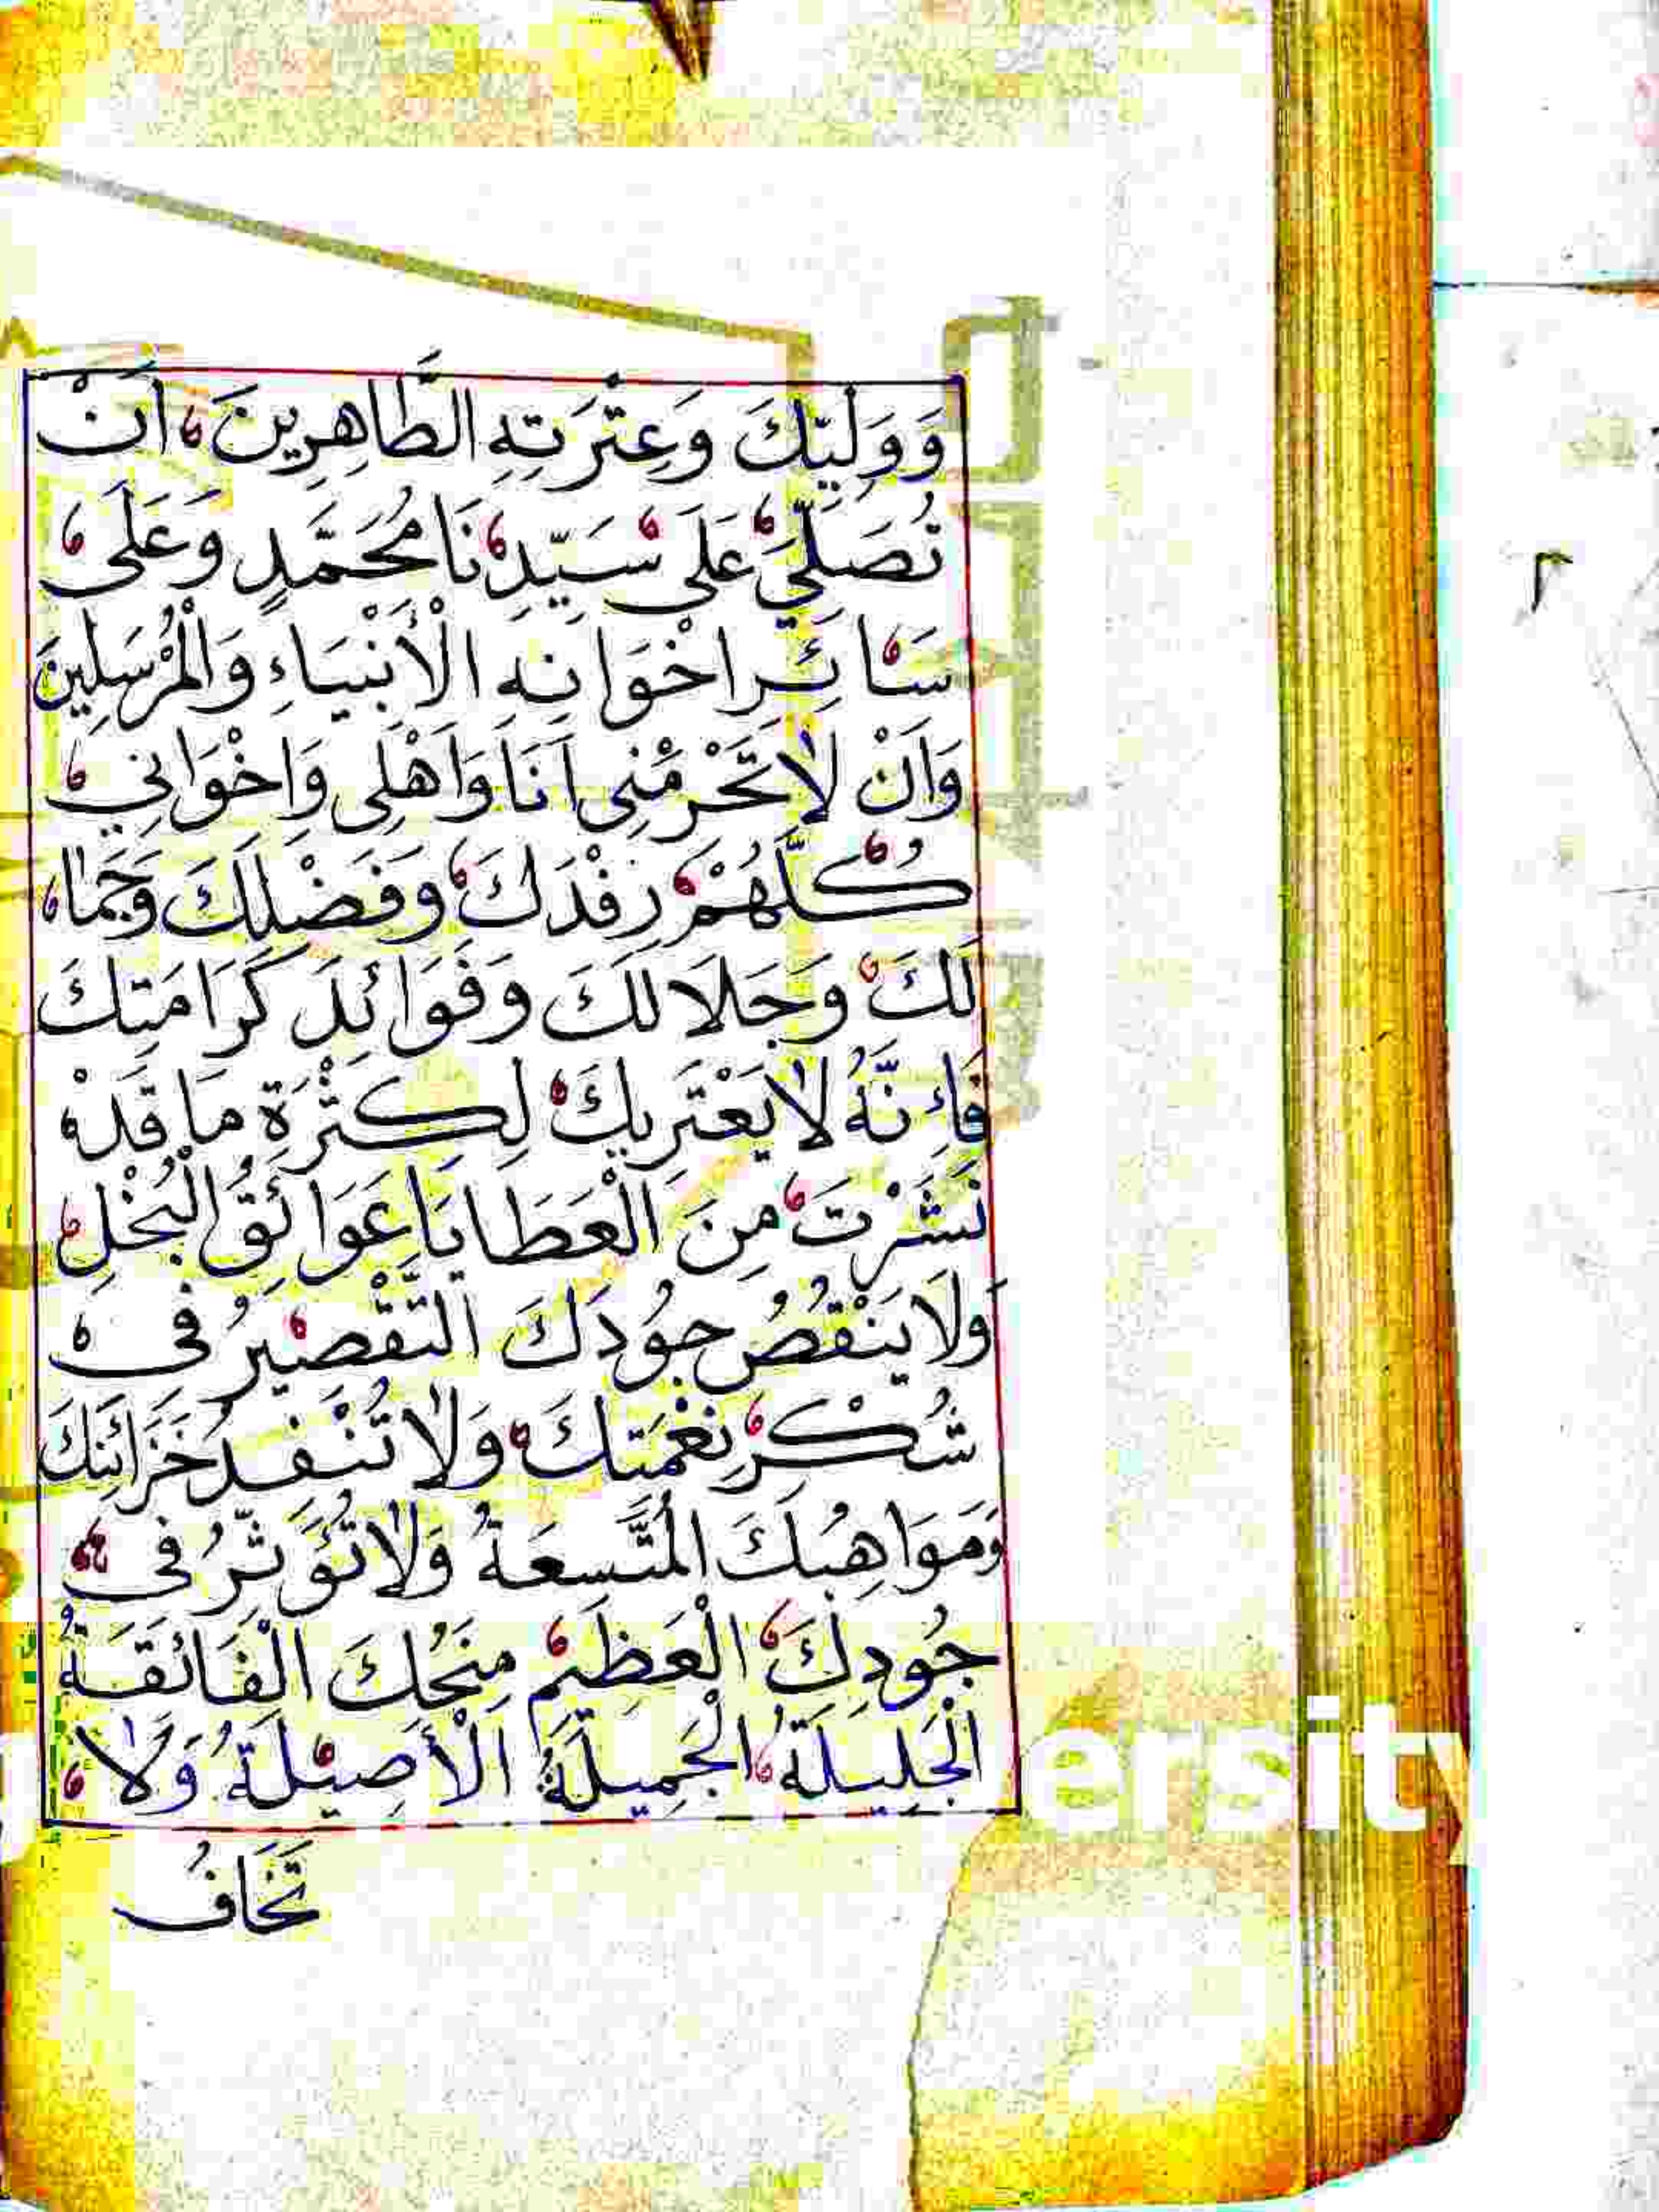 وَوَلِيِّكَ وَعِتْرَتِهِ الطَّاهِرِينَ اَنْ
تُصَلِّيَ عَلَى سَيِّدِنَا مُحَمَّدٍ وَعَلَى
سَائِرِ اخْوَانِهِ الْأَنْبِيَاءِ وَالْمُرْسَلِينَ
وَاَنْ لَا تَحْرِمْنِى اَنَا وَاَهْلِى وَاِخْوَانِي
كُلَّهُمْ رِفْدَكَ وَفَضْلَكَ وَجَمَا
لَكَ وَجَلَالَكَ وَفَوَائِدَ كَرَامَتِكَ
فَإِنَّهُ لَا يَعْتَرِيكَ لِكَثْرَةِ مَا قَدْ
نَشَرْتَ مِنَ الْعَطَايَا عَوَائِقُ الْبُخْلِ
وَلَا يَنْقُصُ جُودَكَ التَّقْصِيرُ فى
شُكْرِ نِعْمَتِكَ وَلَا تُنْفِدُ خَزَائِنَكَ
وَمَوَاهِبُكَ الْمُتَّسِعَةُ وَلَا تُؤَثِّرُ فى
جُودِكَ الْعَظِيمِ مِنَحُكَ الْفَائِقَةُ
الْجَلِيلَةُ الْجَمِيلَةُ الْأَصِيلَةُ وَلَا
تَخَافُ
٢
ersity